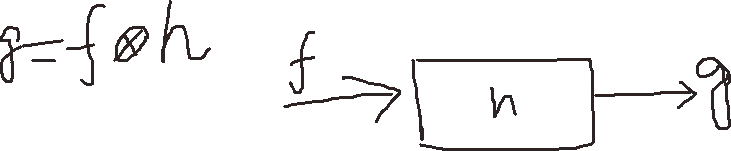 g=f⊗h
f
h
g